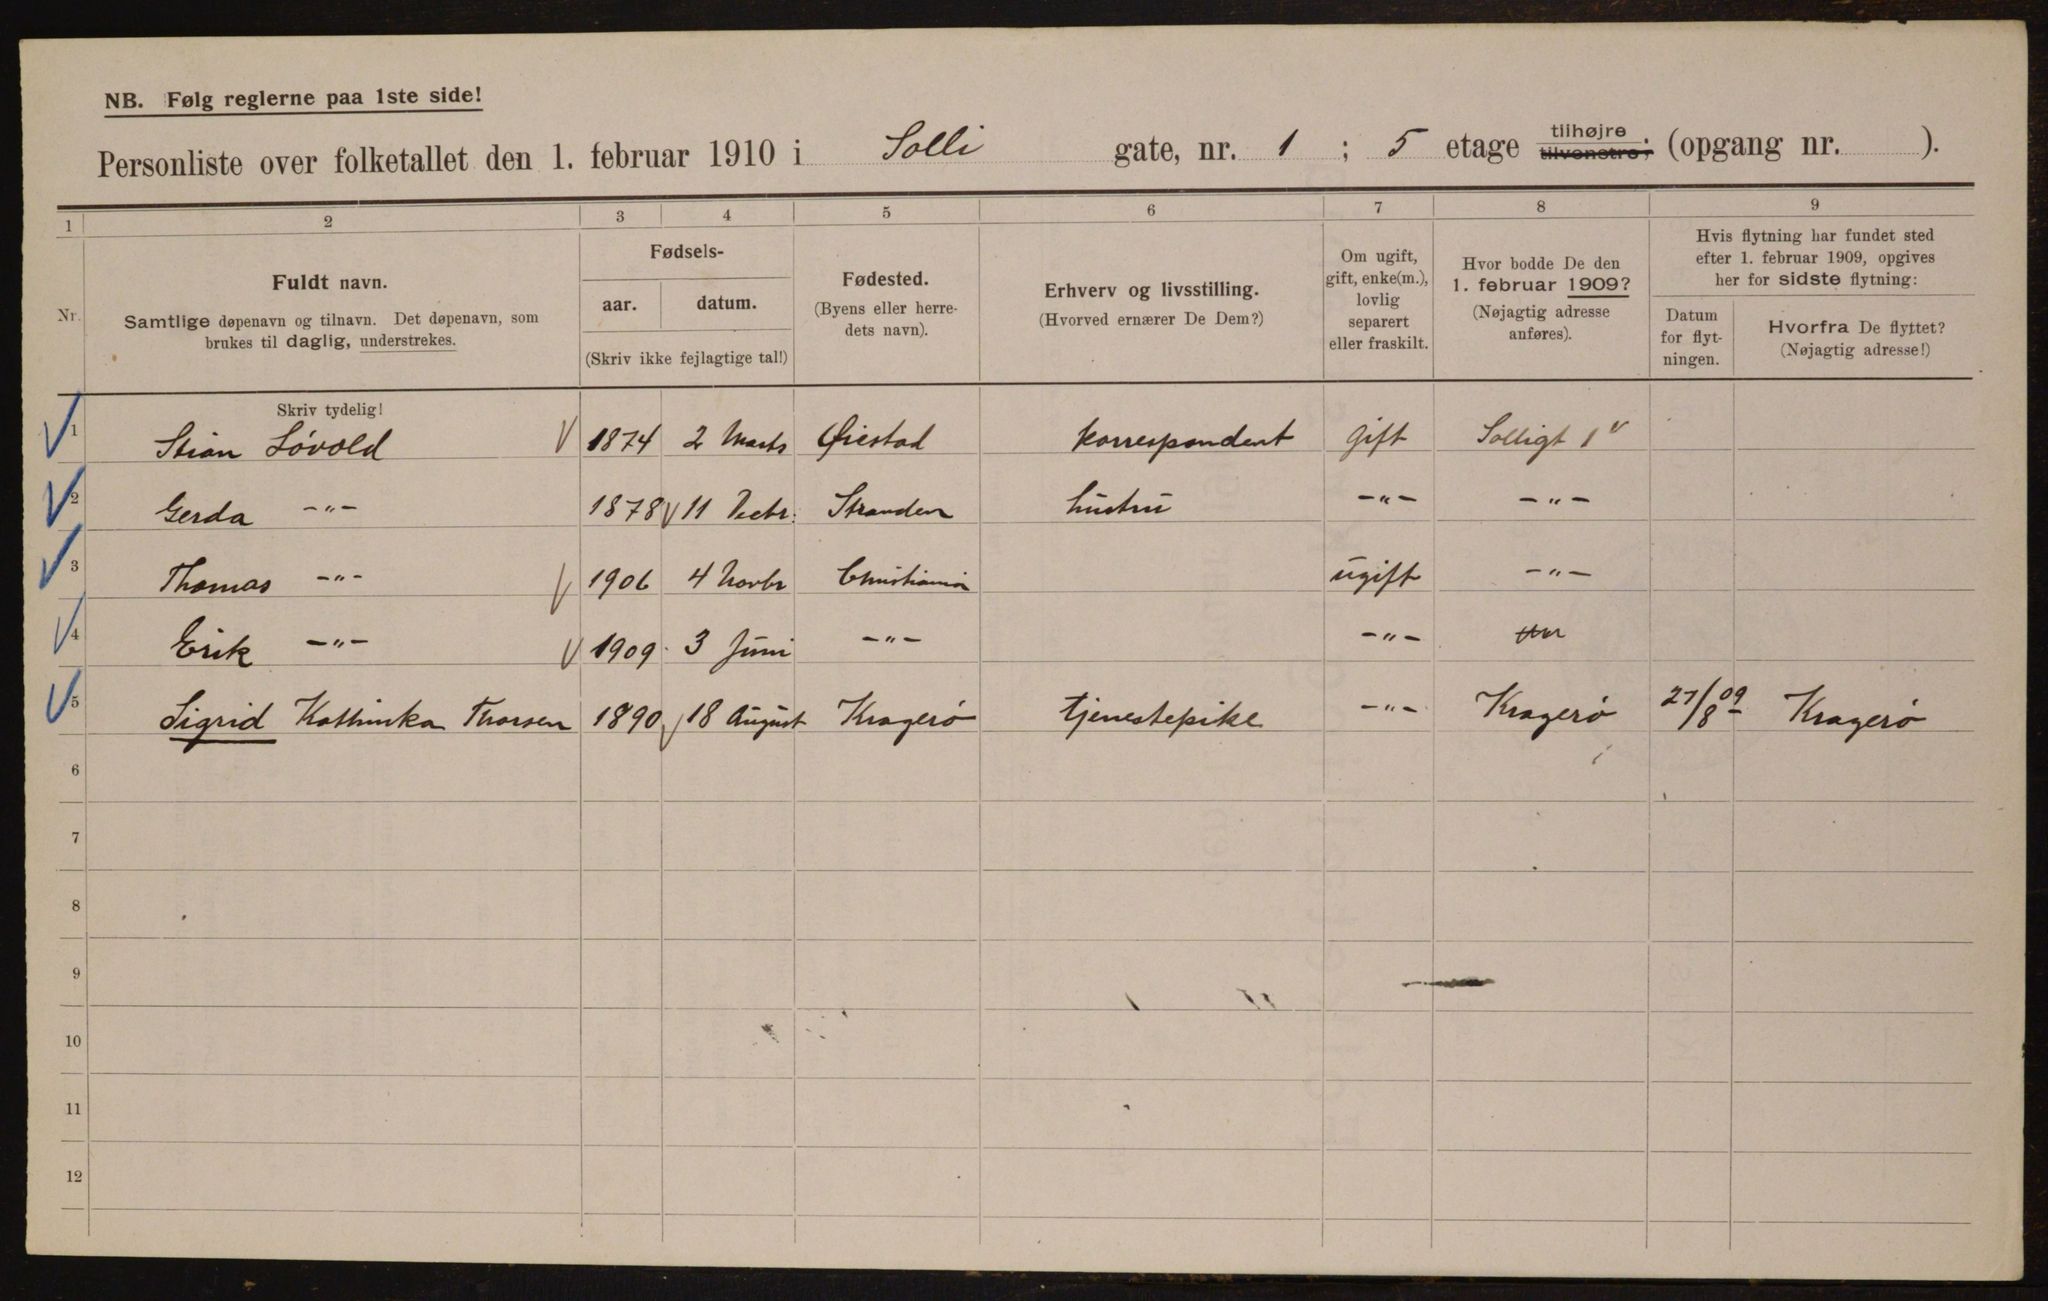 NB. Følg reglerne paa 1ste side!
Personliste over folketallet den 1. februar 1910 i Solli gate, nr. 1 ; 5 etage tilhøjre tilvenstre; (opgang nr. ).
1 2 3 4 5 6 7 8 9
Nr.
Fuldt navn.
Samtlige døpenavn og tilnavn. Det døpenavn, som
brukes til daglig, understrekes.
Fødsels-
aar. datum.
(Skriv ikke fejlagtige tal!)
Fødested.
(Byens eller herre-
dets navn).
Erhverv og livsstilling.
(Hvorved ernærer De Dem?)
Om ugift,
gift, enke(m.),
lovlig
separert
eller fraskilt.
Hvor bodde De den
1. februar 1909?
(Nøjagtig adresse
anføres).
Hvis flytning har fundet sted
efter 1. februar 1909, opgives
her for sidste flytning:
Datum
for flyt-
ningen.
Hvorfra De flyttet?
(Nøjagtig adresse!)
Skriv tydelig!
1 Stian Lövold 1874 2 Marts Øiestad korrespondent gift Solligt 1
2 Gerda -"- 1878 11 Decbr. Stranden hustru -"- -"-
3 Thomas -"- 1906 4 Novbr Christiania ugift -"-
4 Erik -"- 1909 3 Juni -"- -"-
5 Sigrid Kathinka Thorsen 1890 18 August Kragerø tjenestepike -"- Kragerø 27/8 09 Kragerø
6
7
8
9
10
11
12